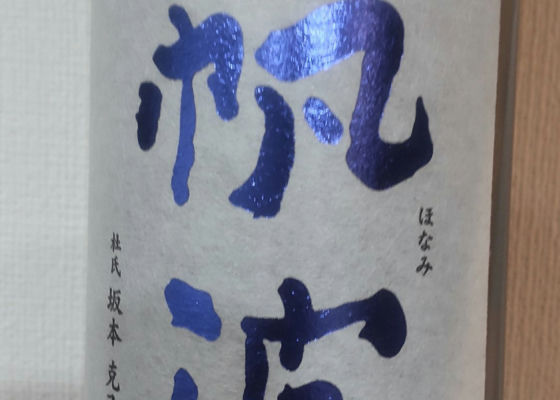 帆波
ほなみ
杜氏 坂本 克